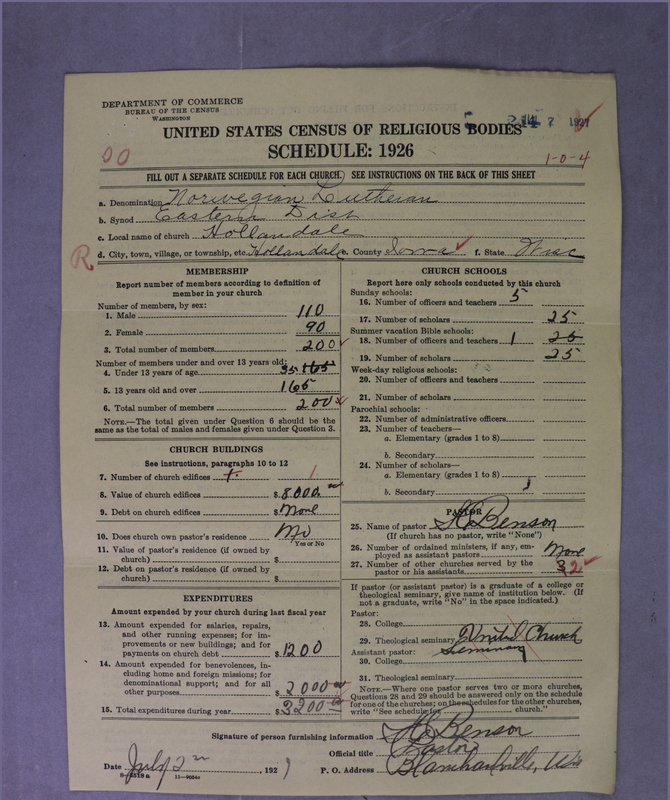 DEPARTMENT OF COMMERCE
BUREAU OF THE CENSUS
WASHINGTON
1927
UNITED STATES CENSUS OF RELIGIOUS BODIES
SCHEDULE: 1926
00
1-0-4
FILL OUT A SEPARATE SCHEDULE FOR EACH CHURCH. SEE INSTRUCTIONS ON THE BACK OF THIS SHEET
a. Denomination Norwegian Lutheran
b. Synod Eastern Dist
c. Local name of church Hollandale
R.
d. City, town, village, or township, etc Hollandale e. County Iowa f. State Wisc
MEMBERSHIP
Report number of members according to definition of
member in your church
Number of members, by sex:
1. Male 110
2. Female 90
3. Total number of members 200
Number of members under and over 13 years old:
4. Under 13 years of age 35 165
5. 13 years old and over 165
6. Total number of members 200
NOTE.—The total given under Question 6 should be the
same as the total of males and females given under Question 3.
CHURCH BUILDINGS
See instructions, paragraphs 10 to 12
7. Number of church edifices 1
8. Value of church edifices $ 8000
9. Debt on church edifices $ None
10. Does church own pastor's residence? No
Yes or No
11. Value of pastor's residence (if owned by
church) $
12. Debt on pastor's residence (if owned by
church) $
EXPENDITURES
Amount expended by your church during last fiscal year
13. Amount expended for salaries, repairs,
and other running expenses; for im-
provements or new buildings; and for
payments on church debt $ 1200
14. Amount expended for benevolences, in-
cluding home and foreign missions; for
denominational support; and for all
other purposes $ 2000
15. Total expenditures during year $ 3200
CHURCH SCHOOLS
Report here only schools conducted by this church
Sunday schools:
16. Number of officers and teachers 5
17. Number of scholars 25
Summer vacation Bible schools:
18. Number of officers and teachers 1 25
19. Number of scholars 25
Week-day religious schools:
20. Number of officers and teachers
21. Number of scholars
Parochial schools:
22. Number of administrative officers
23. Number of teachers—
a. Elementary (grades 1 to 8)
b. Secondary
24. Number of scholars—
a. Elementary (grades 1 to 8)
b. Secondary
PASTOR
25. Name of pastor Benson
(If church has no pastor, write "None")
26. Number of ordained ministers, if any, em-
ployed as assistant pastors None
27. Number of other churches served by the
pastor or his assistants 3 2
If pastor (or assistant pastor) is a graduate of a college or
theological seminary, give name of institution below. (If
not a graduate, write "No" in the space indicated.)
Pastor:
28. College
29. Theological seminary United Church
Assistant pastor: Seminary
30. College
31. Theological seminary
NOTE.—Where one pastor serves two or more churches,
Questions 28 and 29 should be answered only on the schedule
for one of the churches; on the schedules for the other churches,
write "See schedule for church."
Signature of person furnishing information Benson
Official title Pastor
Date July 2 , 192 P. O. Address Blanchardville, Wis
11—9034